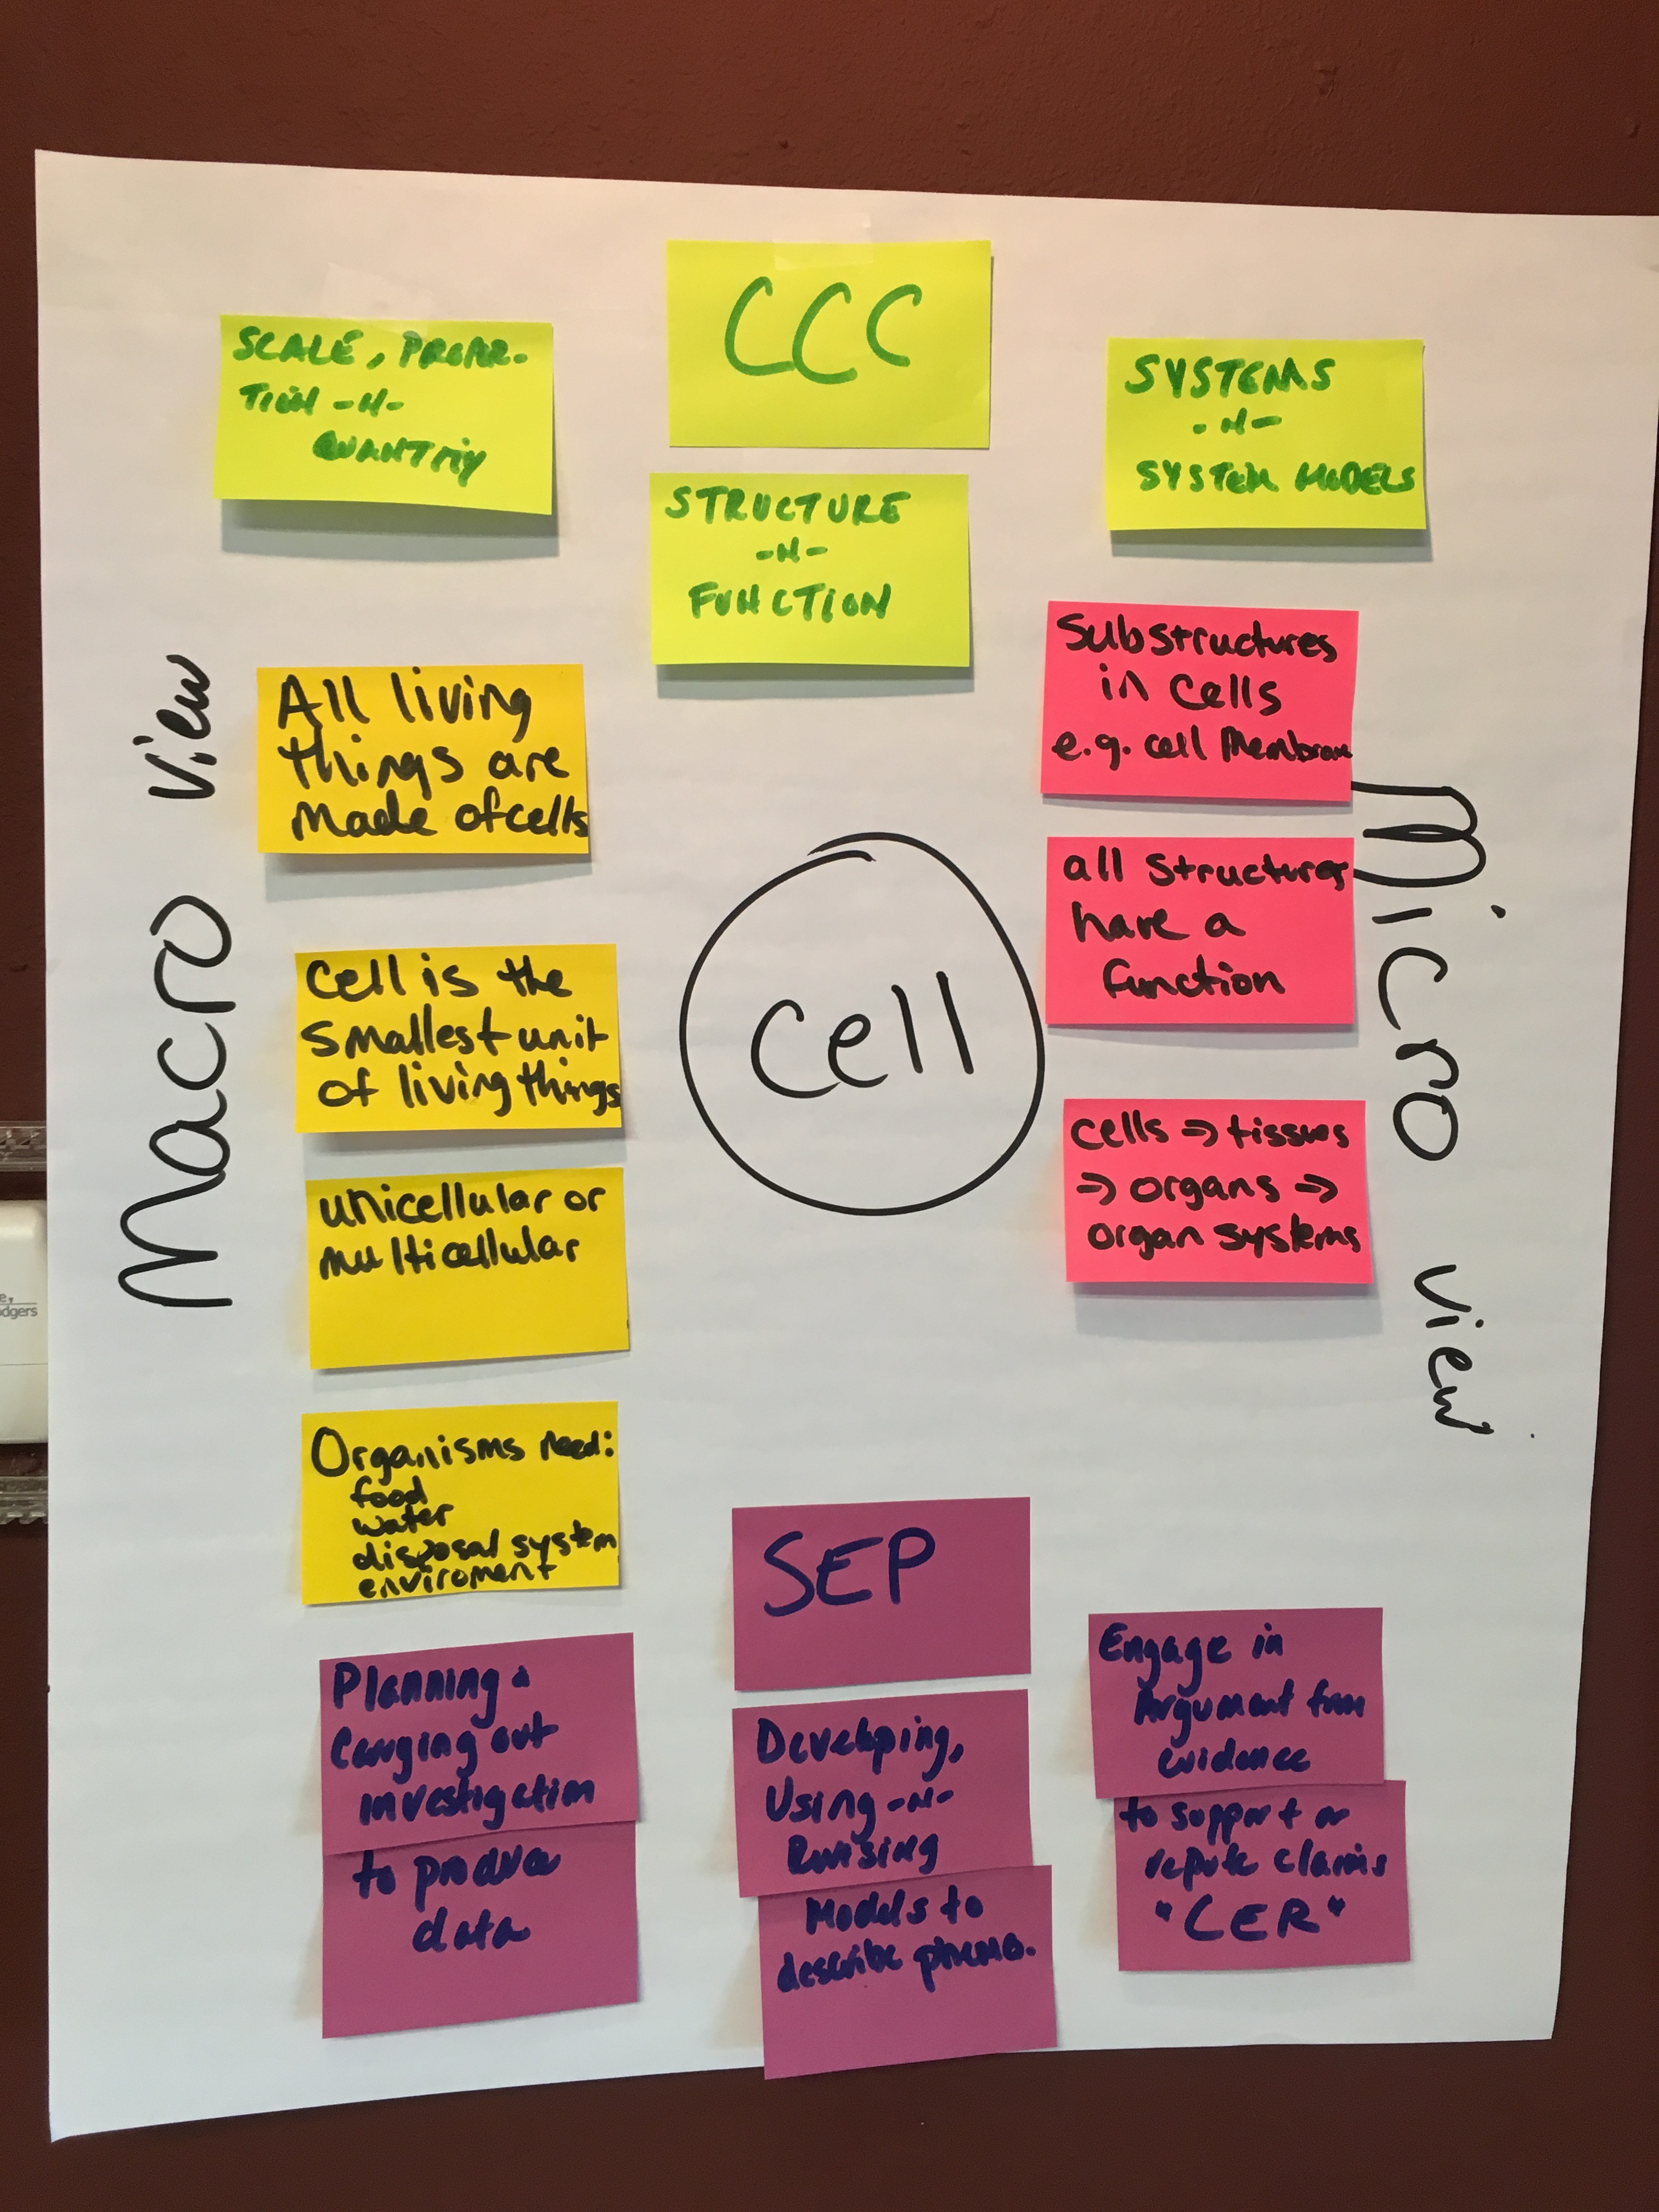 CCC
SCALE, PROPOR-
TION -N-
QUANTITY
STRUCTURE
-N-
FUNCTION
SYSTEMS
-N-
SYSTEM MODELS
Macro View
All living
things are
Made of cells
Cell is the
smallest unit
of living things
unicellular or
multicellular
Organisms need:
food
water
disposal system
enviroment
cell
Micro View
Substructures
in cells
e.g. cell Membrane
all structures
have a
function
cells → tissues
→ organs →
organ systems
SEP
Planning &
Carrying out
investigation
to produce
data
Developing,
Using -N-
Revising
Models to
describe pheno.
Engage in
Argument from
evidence
to support or
repute claims
"CER"